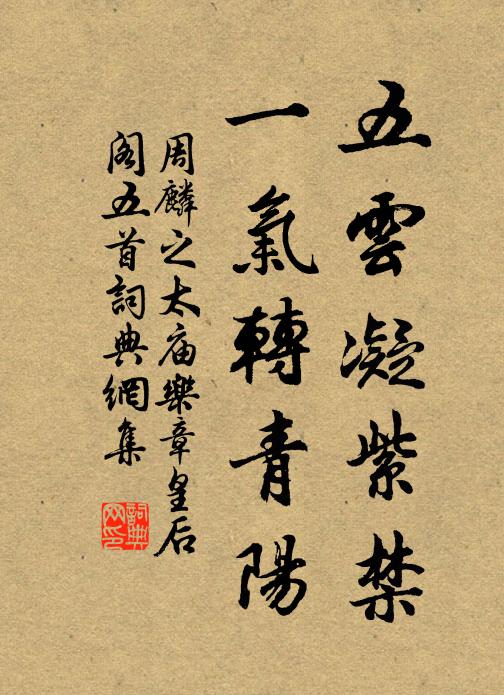 五雲凝紫禁
一氣轉青陽
周麟之太庙樂章皇后
阁五首詞典網集
詞典
网印